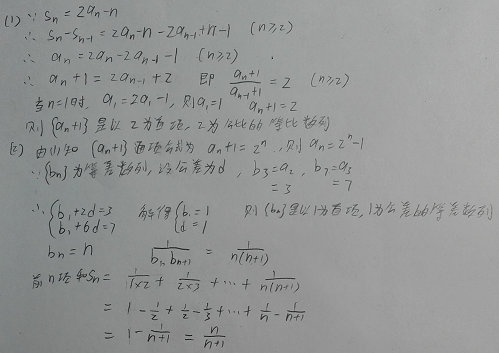 (1) ∵ Sn = 2an - n
∴ Sn - Sn-1 = 2an - n - 2an-1 + n - 1 (n≥2)
∴ an = 2an - 2an-1 - 1 (n≥2)
∴ an + 1 = 2an-1 + 2 即 (an+1)/(an-1+1) = 2 (n≥2)
当n=1时, a1 = 2a1 - 1, 则a1=1 an+1=2
则{an+1}是以2为首项,2为公比的等比数列
(2) 由(1)知 {an+1}通项公式为 an+1=2^n, 则 an = 2^n - 1
∵{bn}为等差数列, 设公差为d, b3=a2, b7=a3
=3 =7
∴ {b1+2d=3 解得{b1=1 则{bn}是以1为首项,1为公差的等差数列
{b1+6d=7 {d=1
bn = n 1/(bn bn+1) = 1/(n(n+1))
前n项和Sn = 1/(1×2) + 1/(2×3) + … + 1/(n(n+1))
= 1 - 1/2 + 1/2 - 1/3 + … + 1/n - 1/(n+1)
= 1 - 1/(n+1) = n/(n+1)